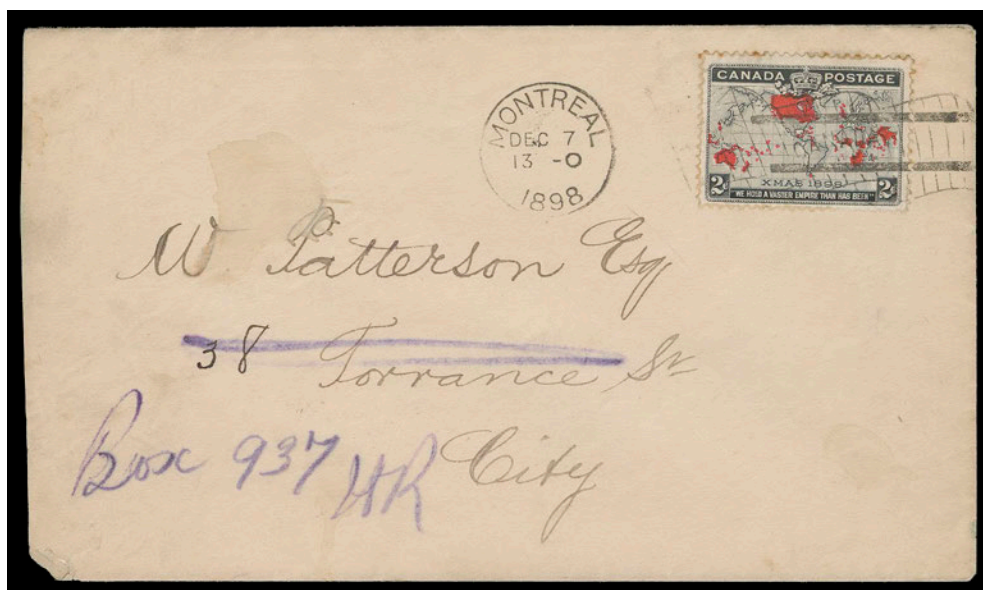 MONTREAL
DEC 7
13 - 0
1898
CANADA POSTAGE
2c XMAS 1898 2c
"WE HOLD A VASTER EMPIRE THAN HAS BEEN"
W Patterson Esq
38 Torrance St
Box 937 HR City